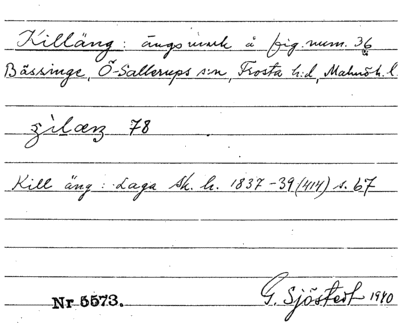 Killäng: ängsmark å fig. num. 36
Bässinge, Ö-Sallerups s:n, Frosta h:d, Malmöh. l.
78
Kill äng: Laga sk. h. 1837-39 (414) s. 67
Nr 5573. G. Sjöstedt 1940